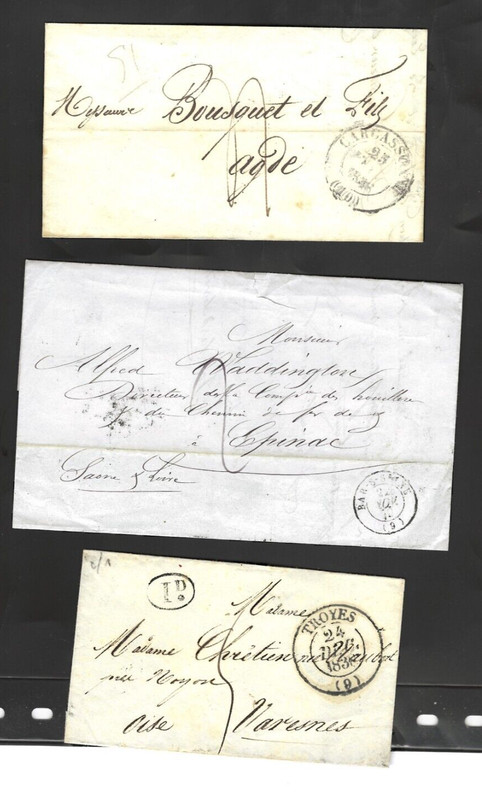 51
Messieurs Bousquet et Fils
agde
CARCASSONNE
25
(10)
Monsieur
Alfred Waddington
Directeur de la Comp.ie des houillères
& du Chemin de fer de
à Epinac
Saône & Loire
BAR-S-SEINE
(9)
1D
Madame
Madame Chrétien
près Noyon
oise Varesnes
TROYES
24
DEC.
(9)